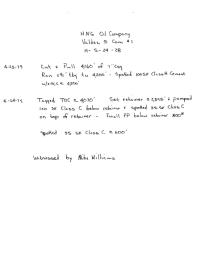 HNG Oil Company
Valdez 5 Com #1
H- 5-24-28
4-25-79 Cut & Pull 4160' of 7" Csg
Ran 2⅜" tbg to 4200' - Spotted 100SX Class H Cement
4200'
4-28-79 Tagged TOC @ 4030' Set retainer @ 2850' & pumped
100 SX Class C below retainer & spotted 25 SX Class C
on top of retainer - Final PP below retainer 800#
Spotted 35 SX Class C @ 600'
Witnessed by Mike Williams